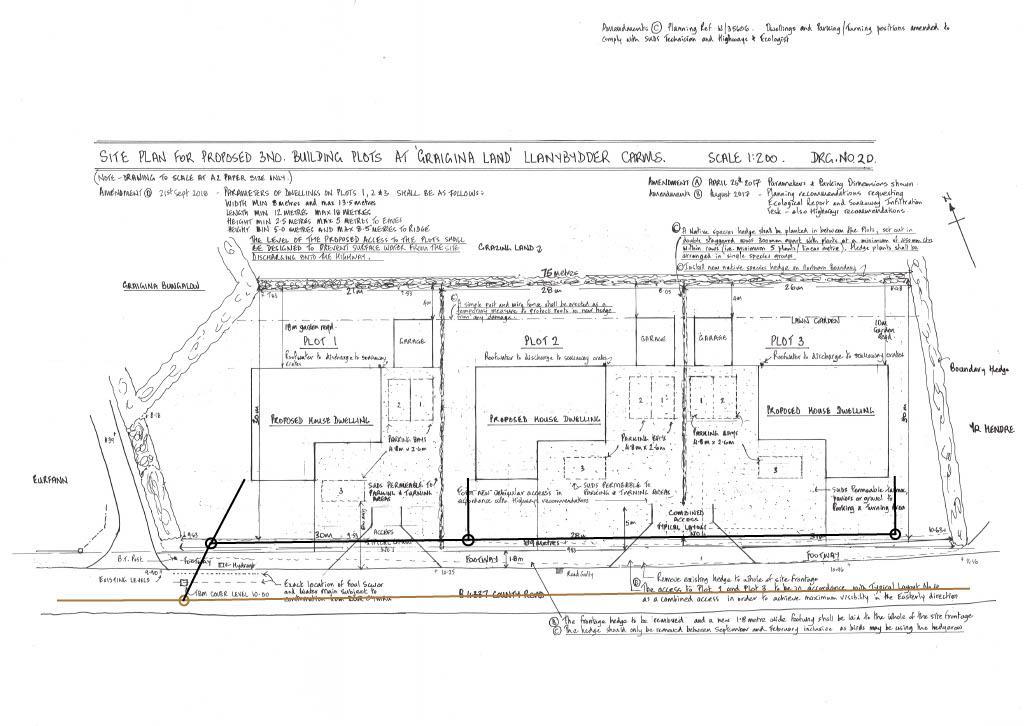 Amendments Ⓒ Planning Ref W/35606. Dwellings and Parking/Turning positions amended to
comply with SUDS Technician and Highways & Ecologist
SITE PLAN FOR PROPOSED 3NO. BUILDING PLOTS AT 'GRAIGINA LAND' LLANYBYDDER CARMS. SCALE 1:200. DRG.NO.2D.
(NOTE-DRAWING TO SCALE AT A2 PAPER SIZE ONLY.)
AMENDMENT Ⓓ 21st Sept 2018 - PARAMETERS OF DWELLINGS ON PLOTS 1, 2 & 3. SHALL BE AS FOLLOWS:
WIDTH MIN 8 metres and max 13.5 metres
LENGTH MIN 12 METRES MAX 18 METRES
HEIGHT MIN 2.5 METRES MAX 5 METRES TO EAVES
HEIGHT MIN 5.0 METRES AND MAX 8.5 METRES TO RIDGE
THE LEVEL OF THE PROPOSED ACCESS TO THE PLOTS SHALL
BE DESIGNED TO PREVENT SURFACE WATER FROM THE SITE
DISCHARGING ONTO THE HIGHWAY.
AMENDMENT Ⓐ APRIL 25th 2017 Parameters & Parking Dimensions shown
AMENDMENTS Ⓑ August 2017 - Planning recommendations requesting
Ecological Report and Soakaway Infiltration
Test - also Highways recommendations.
N
Ⓒ A Native species hedge shall be planted in between the Plots, set out in
double staggered rows 300mm apart with plants at a minimum of 450mm ctrs
within rows (i.e. minimum 5 plants / linear metre). Hedge plants shall be
arranged in single species groups.
Ⓒ Install new native species hedge on Northern Boundary
GRAZING LAND
GRAIGINA BUNGALOW
75 metres
21m
28m
26m
7.63
7.93
8.05
4m
4m
Ⓒ A simple post and wire fence shall be erected as a
temporary measure to protect plants in new hedge
from any damage.
18m garden reqd.
PLOT 1
GARAGE
Roofwater to discharge to soakaway
crates
PLOT 2
GARAGE
Roofwater to discharge to soakaway crates
GARAGE
LAWN GARDEN
10m
Garden
Reqd.
PLOT 3
Roofwater to discharge to soakaway crates
Boundary Hedge
YR HENDRE
30m
PROPOSED HOUSE DWELLING
2 1
PARKING BAYS
4.8m x 2.6m
PROPOSED HOUSE DWELLING
2 1
PARKING BAYS
4.8m x 2.6m
1 2
PARKING BAYS
4.8m x 2.6m
PROPOSED HOUSE DWELLING
8.18
EURFANN
3
SUDS PERMEABLE TO
PARKING & TURNING
AREAS
3
SUDS PERMEABLE TO
PARKING & TURNING AREAS
in accordance with Highways recommendations
3
SUDS Permeable tarmac,
paviors or gravel to
Parking & Turning Area
COMBINED
ACCESS
TYPICAL LAYOUT
ACCESS
5m
30m
28m
FOOTWAY
1.8m
FOOTWAY
FOOTWAY
B.T. Post
Hydrant
EXISTING LEVELS
9.90
10.25
10.86
Exact location of foul sewer
and water main subject to
TBM COVER LEVEL 10.00
Road Gully
B4337 COUNTY ROAD
Remove existing hedge to whole of site frontage
Ⓑ The access to Plot 2 and Plot 3 to be in accordance with Typical Layout No.10
as a combined access in order to achieve maximum visibility in the Easterly direction
Ⓑ The frontage hedge to be removed and a new 1.8 metre wide footway shall be laid to the whole of the site frontage
Ⓒ The hedge should only be removed between September and February inclusive as birds may be using the hedgerow